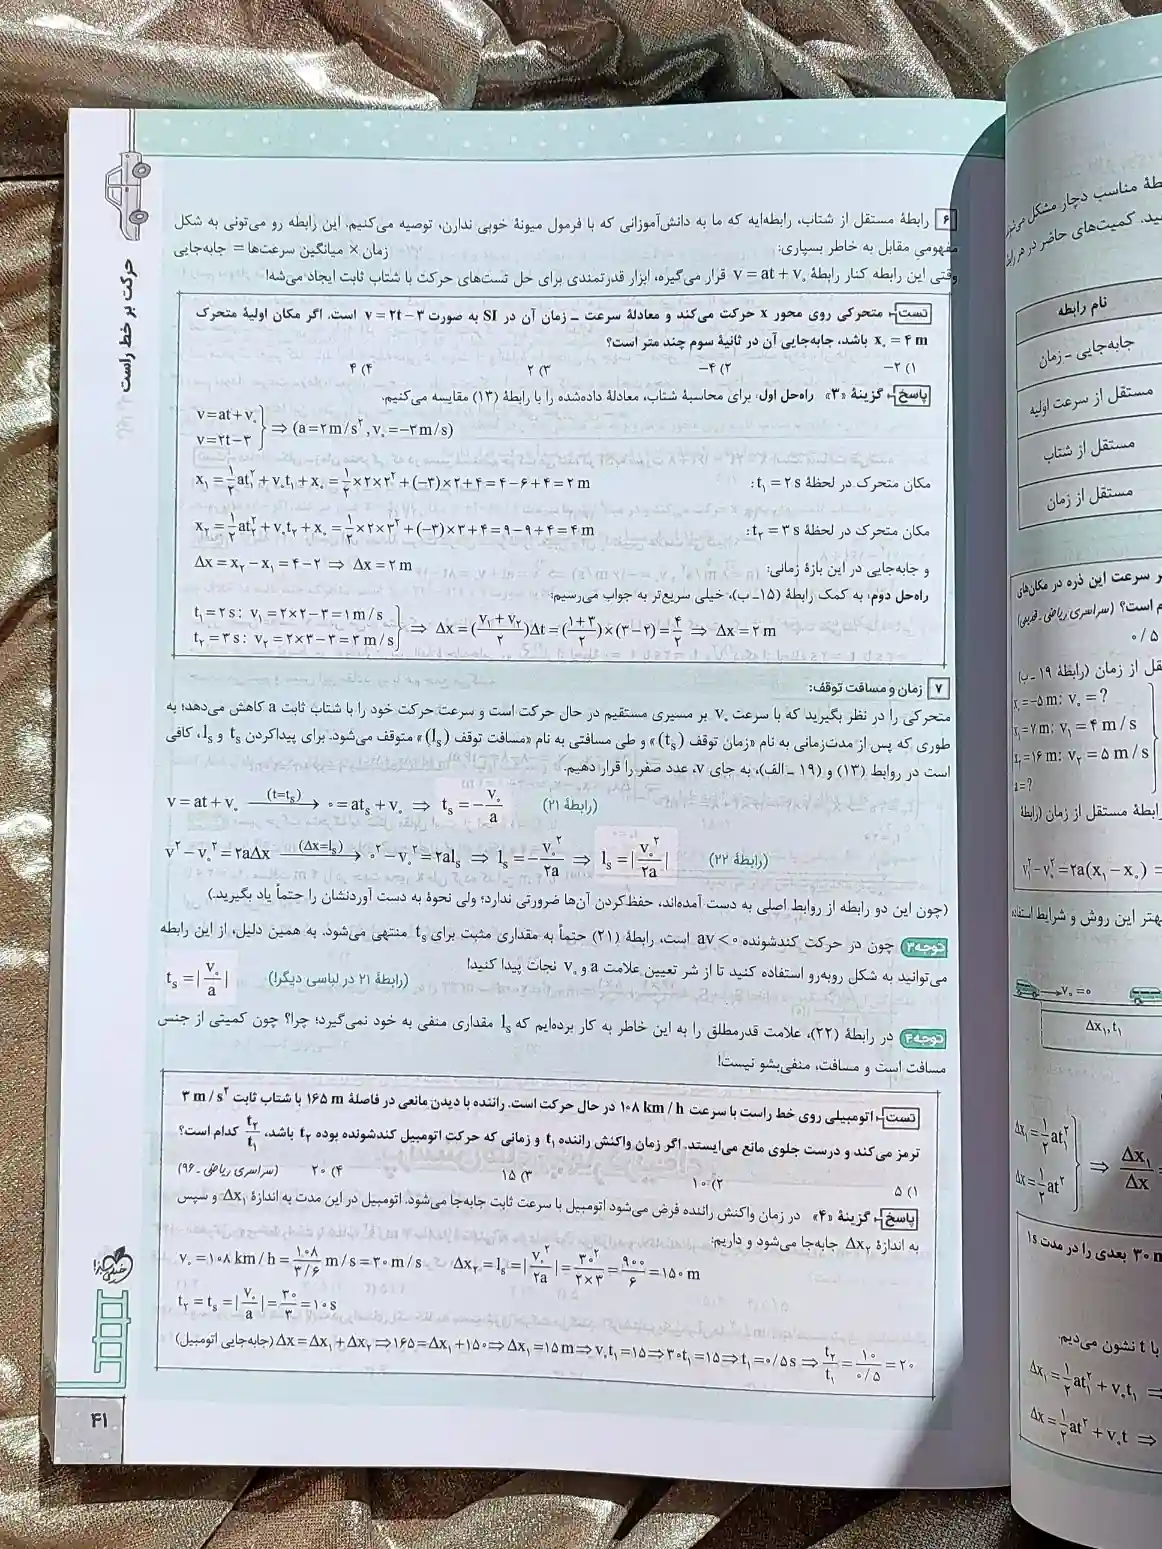 حرکت بر خط راست
۶ رابطهٔ مستقل از شتاب، رابطه‌ایه که ما به دانش‌آموزانی که با فرمول میونهٔ خوبی ندارن، توصیه می‌کنیم. این رابطه رو می‌تونی به شکل
مفهومی مقابل به خاطر بسپاری: زمان × میانگین سرعت‌ها = جابه‌جایی
وقتی این رابطه کنار رابطهٔ v = at + v₀ قرار می‌گیره، ابزار قدرتمندی برای حل تست‌های حرکت با شتاب ثابت ایجاد می‌شه!
تست متحرکی روی محور x حرکت می‌کند و معادلهٔ سرعت ـ زمان آن در SI به صورت v = ۲t − ۳ است. اگر مکان اولیهٔ متحرک
x₀ = ۴ m باشد، جابه‌جایی آن در ثانیهٔ سوم چند متر است؟
۱) −۲ ۲) −۴ ۳) ۲ ۴) ۴
پاسخ گزینهٔ «۳» راه‌حل اول: برای محاسبهٔ شتاب، معادلهٔ داده‌شده را با رابطهٔ (۱۳) مقایسه می‌کنیم.
v = at + v₀
v = ۲t − ۳ } ⇒ (a = ۲ m/s², v₀ = −۳ m/s)
مکان متحرک در لحظهٔ t₁ = ۲ s: x₁ = ۱/۲ at₁² + v₀t₁ + x₀ = ۱/۲ × ۲ × ۲² + (−۳) × ۲ + ۴ = ۴ − ۶ + ۴ = ۲ m
مکان متحرک در لحظهٔ t₂ = ۳ s: x₂ = ۱/۲ at₂² + v₀t₂ + x₀ = ۱/۲ × ۲ × ۳² + (−۳) × ۳ + ۴ = ۹ − ۹ + ۴ = ۴ m
و جابه‌جایی در این بازهٔ زمانی: Δx = x₂ − x₁ = ۴ − ۲ ⇒ Δx = ۲ m
راه‌حل دوم: به کمک رابطهٔ (۱۵ـ ب)، خیلی سریع‌تر به جواب می‌رسیم:
t₁ = ۲ s: v₁ = ۲ × ۲ − ۳ = ۱ m/s
t₂ = ۳ s: v₂ = ۲ × ۳ − ۳ = ۳ m/s } ⇒ Δx = ((v₁ + v₂)/۲)Δt = ((۱ + ۳)/۲) × (۳ − ۲) = ۴/۲ ⇒ Δx = ۲ m
۷ زمان و مسافت توقف:
متحرکی را در نظر بگیرید که با سرعت v₀ بر مسیری مستقیم در حال حرکت است و سرعت حرکت خود را با شتاب ثابت a کاهش می‌دهد؛ به
طوری که پس از مدت‌زمانی به نام «زمان توقف (tₛ)» و طی مسافتی به نام «مسافت توقف (lₛ)» متوقف می‌شود. برای پیداکردن tₛ و lₛ، کافی
است در روابط (۱۳) و (۱۹ ـ الف)، به جای v، عدد صفر را قرار دهیم.
v = at + v₀ —(t=tₛ)→ ۰ = atₛ + v₀ ⇒ tₛ = −v₀/a (رابطهٔ ۲۱)
v² − v₀² = ۲aΔx —(Δx=lₛ)→ ۰² − v₀² = ۲alₛ ⇒ lₛ = −v₀²/۲a ⇒ lₛ = |v₀²/۲a| (رابطهٔ ۲۲)
(چون این دو رابطه از روابط اصلی به دست آمده‌اند، حفظ‌کردن آن‌ها ضرورتی ندارد؛ ولی نحوهٔ به دست آوردنشان را حتماً یاد بگیرید.)
توجه۳ چون در حرکت کندشونده av < ۰ است، رابطهٔ (۲۱) حتماً به مقداری مثبت برای tₛ منتهی می‌شود. به همین دلیل، از این رابطه
می‌توانید به شکل روبه‌رو استفاده کنید تا از شر تعیین علامت a و v₀ نجات پیدا کنید! (رابطهٔ ۲۱ در لباسی دیگر!) tₛ = |v₀/a|
توجه۴ در رابطهٔ (۲۲)، علامت قدرمطلق را به این خاطر به کار برده‌ایم که lₛ مقداری منفی به خود نمی‌گیرد؛ چرا؟ چون کمیتی از جنس
مسافت است و مسافت، منفی‌بشو نیست!
تست اتومبیلی روی خط راست با سرعت ۱۰۸ km/h در حال حرکت است. راننده با دیدن مانعی در فاصلهٔ ۱۶۵ m با شتاب ثابت ۳ m/s²
ترمز می‌کند و درست جلوی مانع می‌ایستد. اگر زمان واکنش راننده t₁ و زمانی که حرکت اتومبیل کندشونده بوده t₂ باشد، t₂/t₁ کدام است؟
۱) ۵ ۲) ۱۰ ۳) ۱۵ ۴) ۲۰ (سراسری ریاضی ـ ۹۶)
پاسخ گزینهٔ «۴» در زمان واکنش راننده فرض می‌شود اتومبیل با سرعت ثابت جابه‌جا می‌شود. اتومبیل در این مدت به اندازهٔ Δx₁ و سپس
به اندازهٔ Δx₂ جابه‌جا می‌شود و داریم:
v₀ = ۱۰۸ km/h = ۱۰۸/۳/۶ m/s = ۳۰ m/s Δx₂ = lₛ = |v₀²/۲a| = ۳۰²/(۲×۳) = ۹۰۰/۶ = ۱۵۰ m
t₂ = tₛ = |v₀/a| = ۳۰/۳ = ۱۰ s
(جابه‌جایی اتومبیل) Δx = Δx₁ + Δx₂ ⇒ ۱۶۵ = Δx₁ + ۱۵۰ ⇒ Δx₁ = ۱۵ m ⇒ v₀t₁ = ۱۵ ⇒ ۳۰t₁ = ۱۵ ⇒ t₁ = ۰/۵ s ⇒ t₂/t₁ = ۱۰/۰/۵ = ۲۰
خیلی سبز
۴۱
نام رابطه
جابه‌جایی ـ زمان
مستقل از سرعت اولیه
مستقل از شتاب
مستقل از زمان